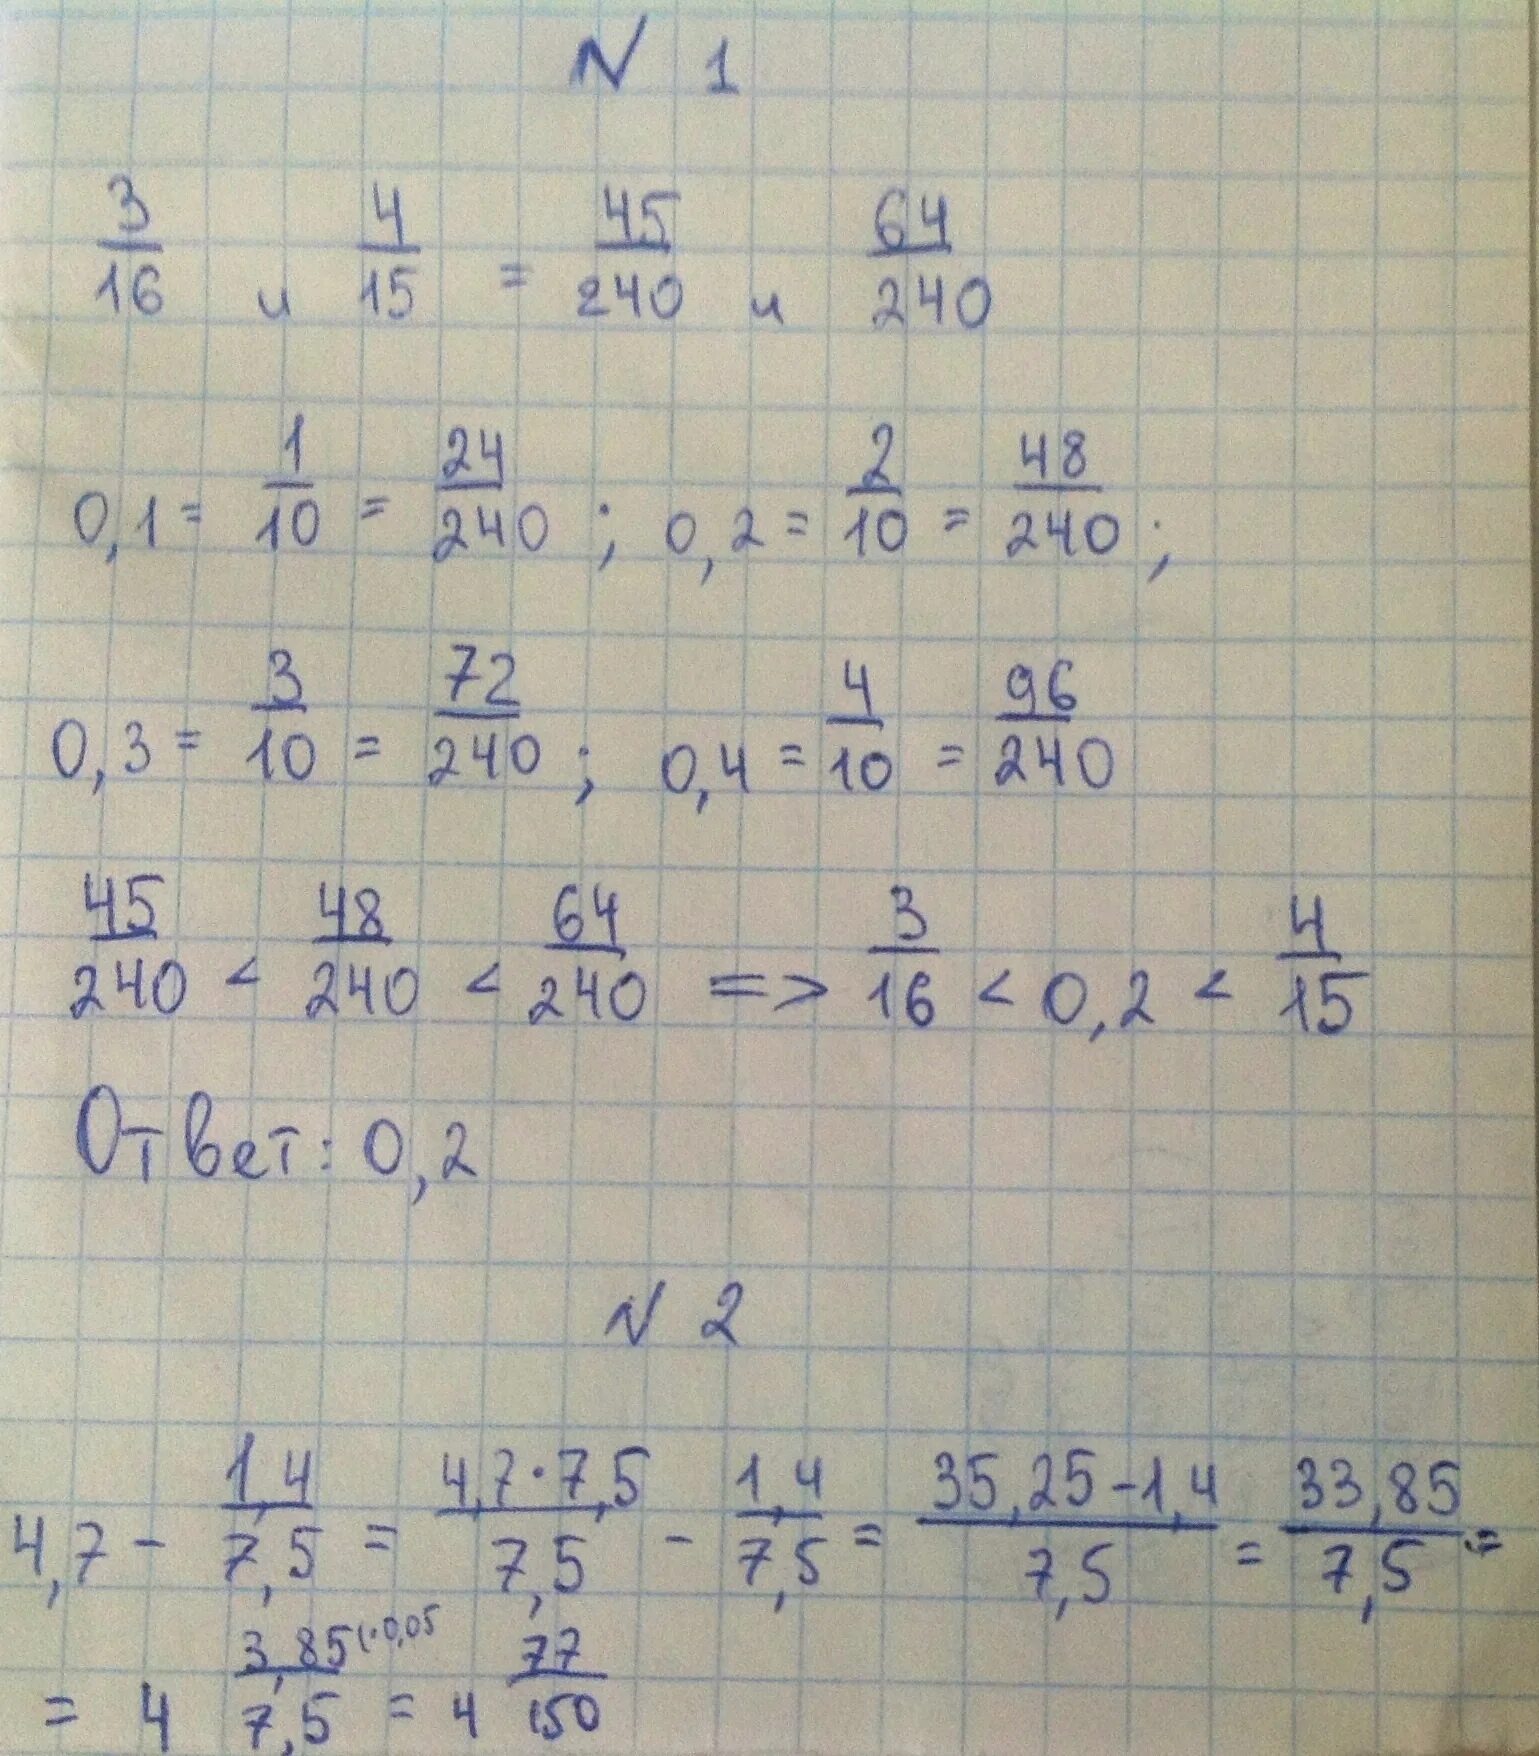 N 1
3/16 и 4/15 = 45/240 и 64/240
0,1 = 1/10 = 24/240 ; 0,2 = 2/10 = 48/240 ;
0,3 = 3/10 = 72/240 ; 0,4 = 4/10 = 96/240
45/240 < 48/240 < 64/240 => 3/16 < 0,2 < 4/15
Ответ: 0,2
N 2
4,7 - 1,4/7,5 = 4,7·7,5/7,5 - 1,4/7,5 = 35,25-1,4/7,5 = 33,85/7,5 =
= 4 3,85(·0,05/7,5 = 4 77/150